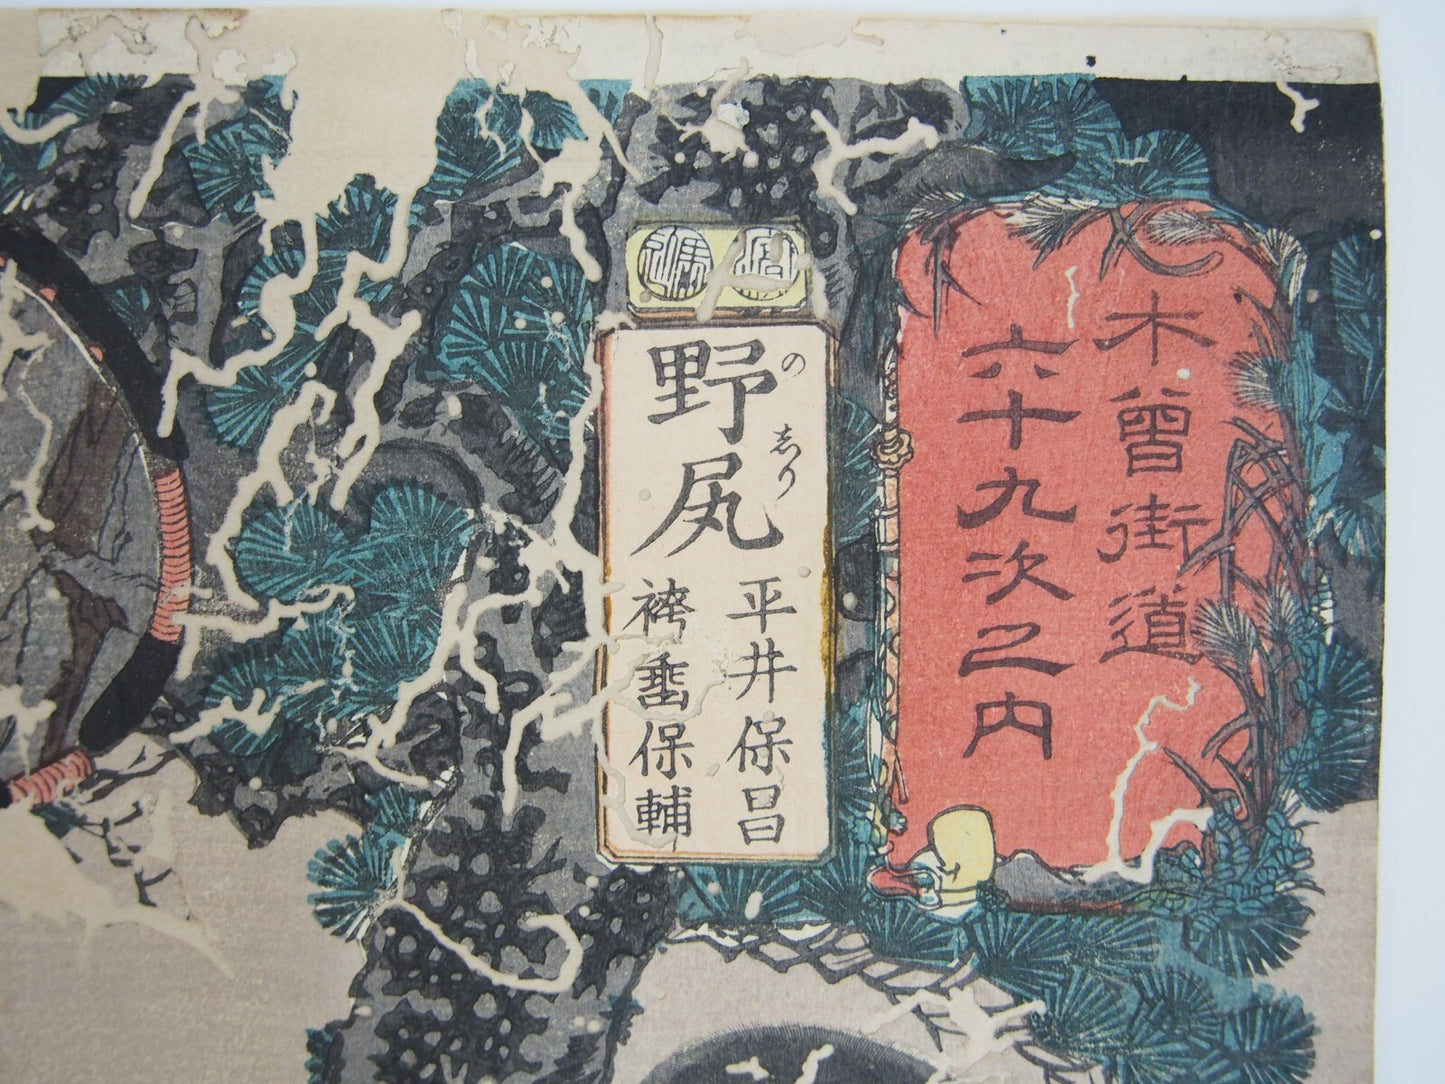 木曾街道
六十九次之内
野尻
のじり
平井保昌
袴垂保輔